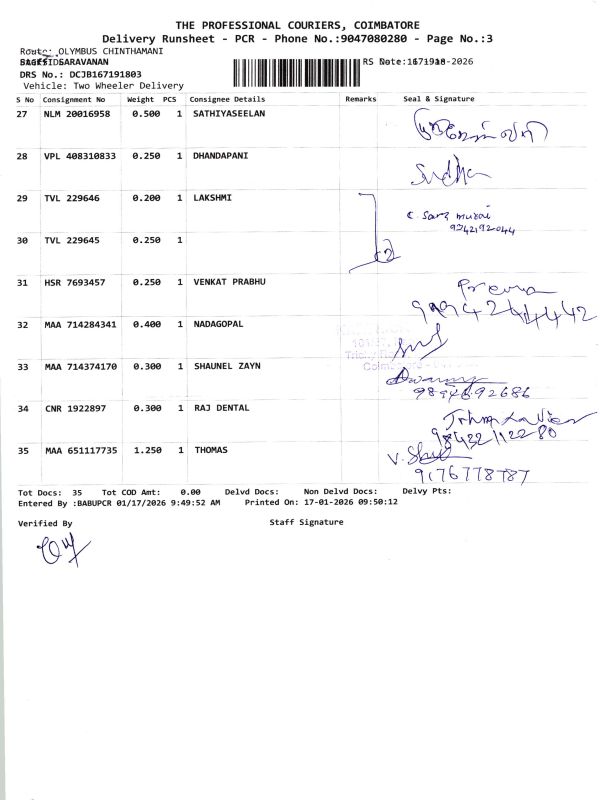 THE PROFESSIONAL COURIERS, COIMBATORE
Delivery Runsheet - PCR - Phone No.:9047080280 - Page No.:3
Route: OLYMBUS CHINTHAMANI
SARAVANAN
DRS No.: DCJB167191803
Vehicle: Two Wheeler Delivery
S No Consignment No Weight PCS Consignee Details Remarks Seal & Signature
27 NLM 20016958 0.500 1 SATHIYASEELAN
28 VPL 408310833 0.250 1 DHANDAPANI
Sudha
29 TVL 229646 0.200 1 LAKSHMI
9342192044
30 TVL 229645 0.250 1
2
31 HSR 7693457 0.250 1 VENKAT PRABHU
Prema
32 MAA 714284341 0.400 1 NADAGOPAL
33 MAA 714374170 0.300 1 SHAUNEL ZAYN
34 CNR 1922897 0.300 1 RAJ DENTAL
35 MAA 651117735 1.250 1 THOMAS
9176778787
Tot Docs: 35 Tot COD Amt: 0.00 Delvd Docs: Non Delvd Docs: Delvy Pts:
Entered By :BABUPCR 01/17/2026 9:49:52 AM Printed On: 17-01-2026 09:50:12
Verified By Staff Signature